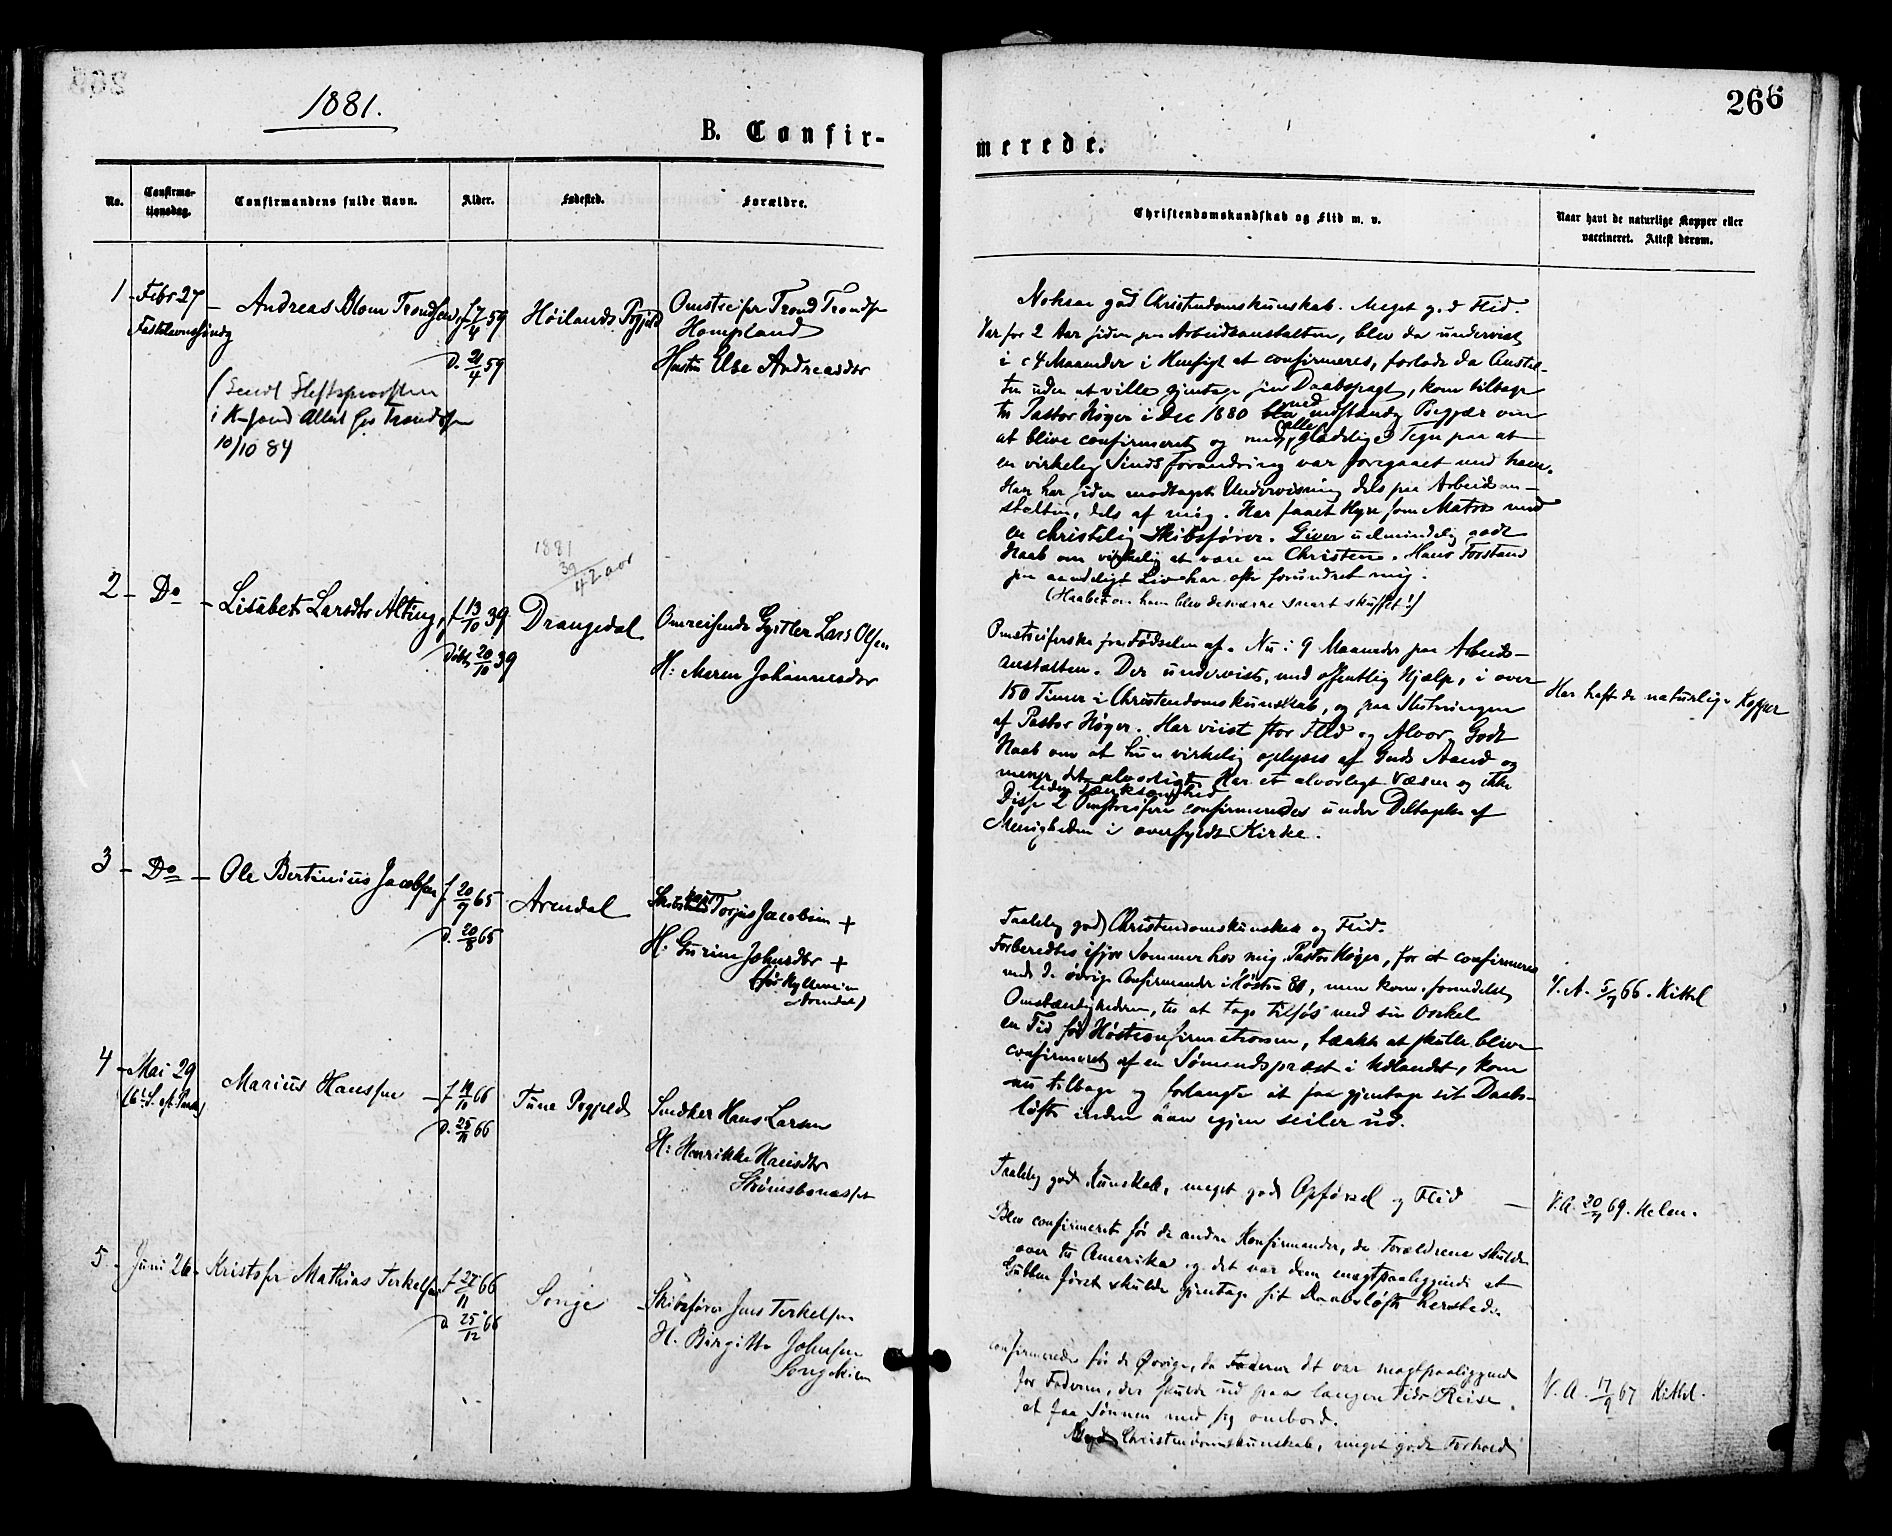 1881.
266
B. Confir-
merede.
No.
Confirma-
tionsdag.
Confirmandens fulde Navn.
Alder.
Fødested.
Forældre.
Christendomskundskab og Flid m. v.
Naar havt de naturlige Kopper eller
vaccineret. Attest derom.
1 - Febr 27 - Andreas Blom Trondsen f. 7/4 59
Høilands Prgjeld
Omstreifer Trond Trondsen
Hompland
Hustru Else Andreasdtr
d. 21/4 59
i K-sand Attest for Trondsen
10/10 84
Noksaa god Christendomskunskab. Meget god Flid.
Var for 2 Aar siden paa Arbeidsanstalten, blev da undervist
i c 4 Maaneder i Hensigt at confirmeres, forlod da Anstal-
ten uden at ville gjentage sin Daabspagt, kom tilbage
til Pastor Høyer i Dec 1880 med indstændig Begjær om
at blive confirmeret og med alle glædelige Tegn paa at
en virkelig Sindsforandring var foregaaet med ham.
Han har siden modtaget Undervisning dels paa Arbeidsan-
stalten, dels af mig. Har faaet Hyre som Matros med
en christelig Skibsfører. Giver ualmindelig godt
Haab om virkelig at være en Christen. Hans Forstand
paa aandeligt Liv har ofte forundret mig.
(Haabet om ham blev desværre snart skuffet!)
1881
39
42 aar
2 - Do - Lisabet Larsdtr Alting, f 13/10 39
Døbt 20/10 39
Drangedal
Omreisende Gjørtler Lars Olsen
H: Maren Johannesdtr
Omstreiferske fra Fødselen af. Nu i 9 Maaneder paa Arbeids-
anstalten. Der undervist, med offentlig Hjælp, i over
150 Timer i Christendomskunskab, og paa Slutningen
af Pastor Høyer. Har viist stor Flid og Alvor. Godt
Haab om at hun virkelig oplyses af Guds Aand og
mener det alvorligt. Har et alvorligt Væsen og ikke
liden Tænksomhed
Disse 2 Omstreifere confirmeredes under Deltagelse af
Menigheden i overfyldt Kirke.
Har haft de naturlige Kopper
3 - Do - Ole Bertinius Jacobsen f. 20/7 65
d. 20/8 65
Arendal
Torjus Jacobsen +
H. Gurine Johnsdtr +
Arendal)
Taalelig god Christendomskunskab og Flid.
Forberedtes ifjor Sommer hos mig Pastor Høyer, for at confirmeres
med de øvrige Confirmander i Høsten 80, men kom, formedelst
Omstændigheder, til at tage tilsjøs med sin Onkel
en Tid før Høstconfirmationen, tænkte at skulle blive
confirmeret af en Sømandspræst i Udlandet, kom
nu tilbage og forlangte at faa gjentage sit Daabs-
løfte inden han igjen seiler ud.
V. A. 5/7 66. Kittel
4 - Mai 29
Marius Hanssen - f 19/10 66
d. 25/11 66
Tune Prgjeld
Snedker Hans Larsen
H: Henrikke Hansdtr
Strømsbonæsset
Taalelig god Kunskab, meget god Opførsel og Flid
Blev confirmeret før de andre Konfirmander, da Forældrene skulde
over til Amerika og det var dem magtpaaliggende at
Gutten først skulde gjentage sit Daabsløfte hersteds.
V. A. 20/7 69. Helen.
5 - Juni 26 - Kristofer Mathias Terkelsen f 27/11 66
d 25/12 66
Songe
Skibsfører Jens Terkelsen
H. Birgitte Johnsen
Confirmeredes før de Øvrige, da det var magtpaaliggende
for Faderen, der skulde ud paa langere Tids Reise,
at faa Sønnen med sig ombord.
Christendomskunskab, meget godt Forhold
V. A. 17/9 67 Kittel.